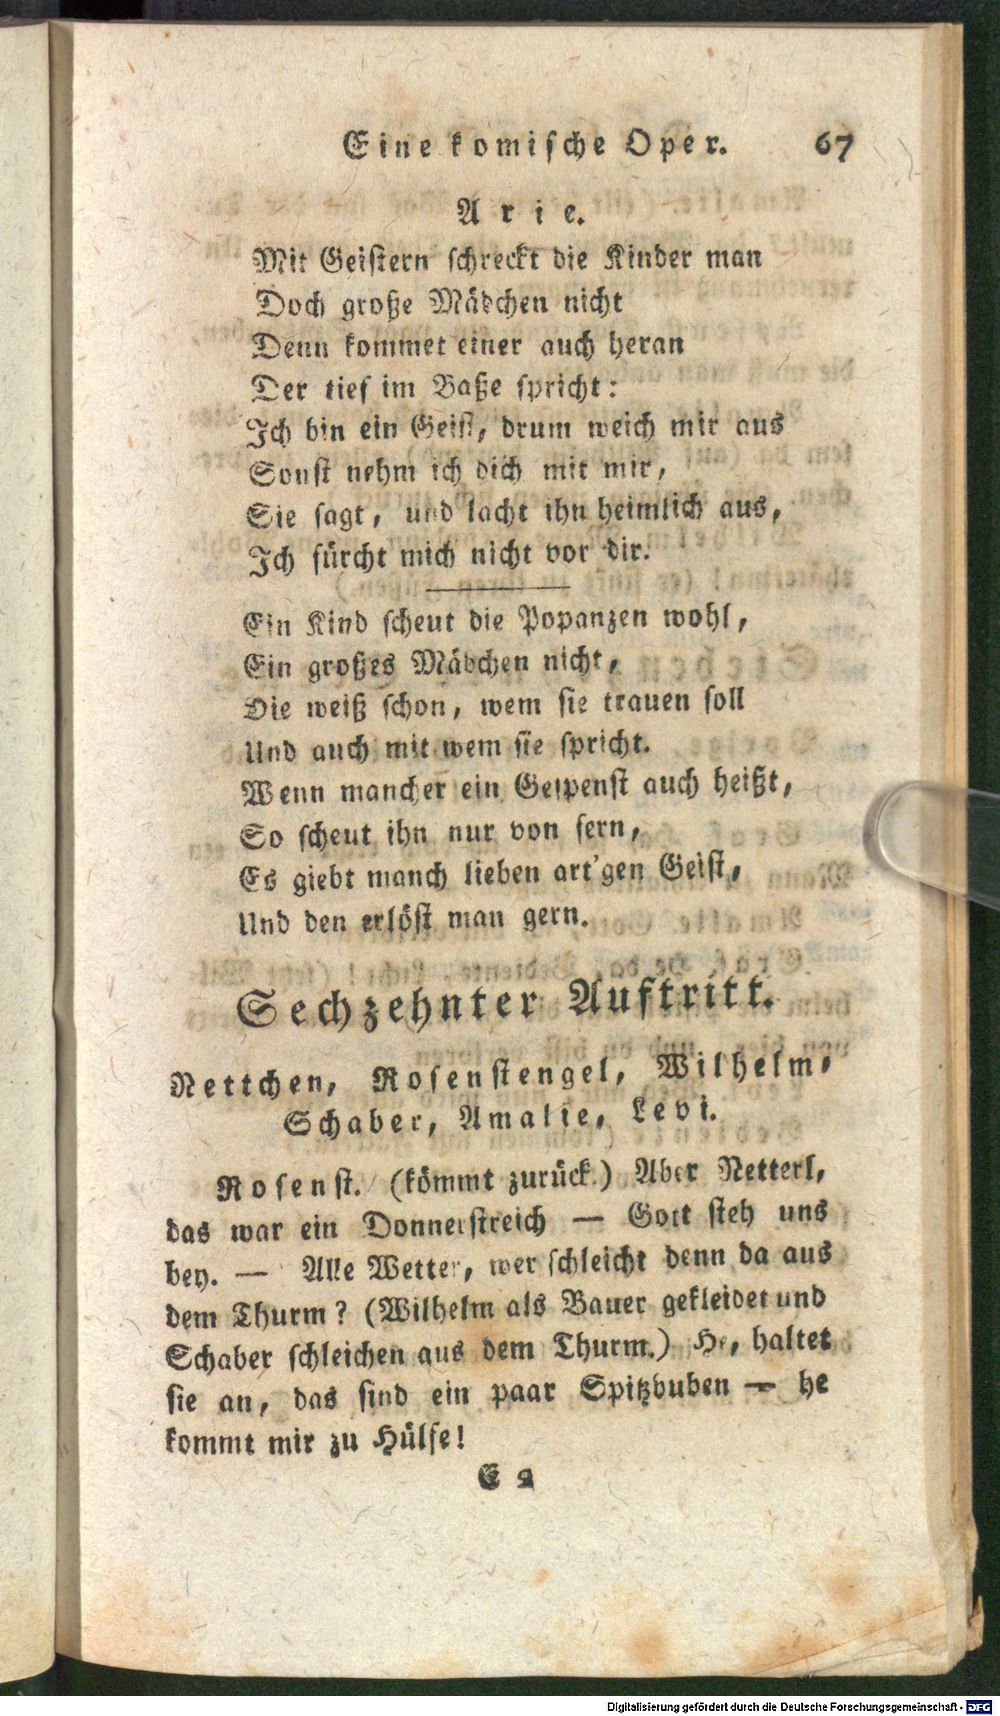 Eine komische Oper. 67
Arie.
Mit Geistern schreckt die Kinder man
Doch große Mädchen nicht
Denn kommet einer auch heran
Der tief im Baße spricht:
Ich bin ein Geist, drum weich mir aus
Sonst nehm ich dich mit mir,
Sie sagt, und lacht ihn heimlich aus,
Ich fürcht mich nicht vor dir.
Ein Kind scheut die Popanzen wohl,
Ein großes Mädchen nicht,
Die weiß schon, wem sie trauen soll
Und auch mit wem sie spricht.
Wenn mancher ein Gespenst auch heißt,
So scheut ihn nur von fern,
Es giebt manch lieben art'gen Geist,
Und den erlöst man gern.
Sechzehnter Auftritt.
Nettchen, Rosenstengel, Wilhelm,
Schaber, Amalie, Levi.
Rosenst. (kömmt zurück.) Aber Netterl,
das war ein Donnerstreich — Gott steh uns
bey. — Alle Wetter, wer schleicht denn da aus
dem Thurm? (Wilhelm als Bauer gekleidet und
Schaber schleichen aus dem Thurm.) He, haltet
sie an, das sind ein paar Spitzbuben — he
kommt mir zu Hülfe!
E 2
Digitalisierung gefördert durch die Deutsche Forschungsgemeinschaft - DFG